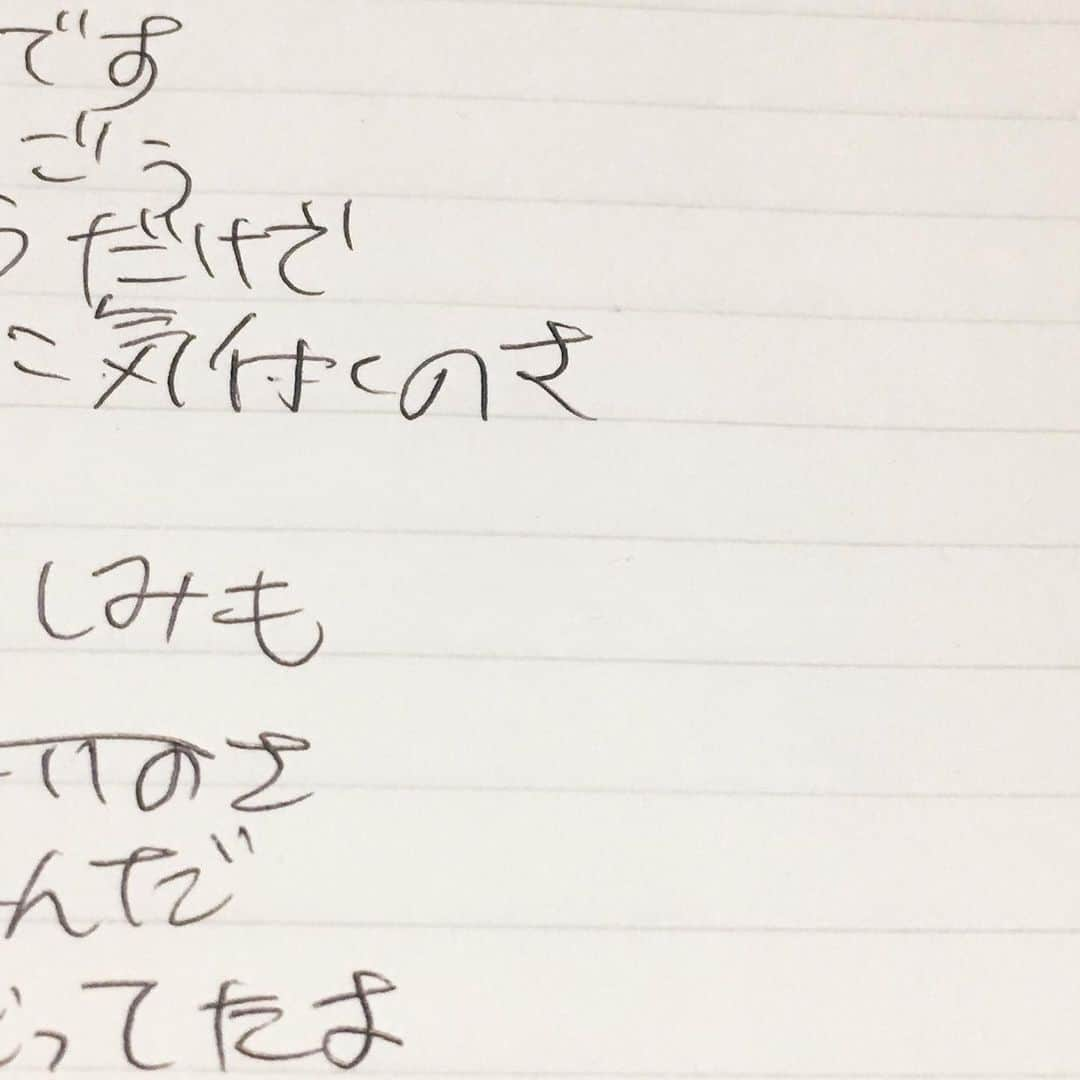 です
ごう
うだけで
こ気付くのさ
しみも
いのさ
んだ
ってたよ